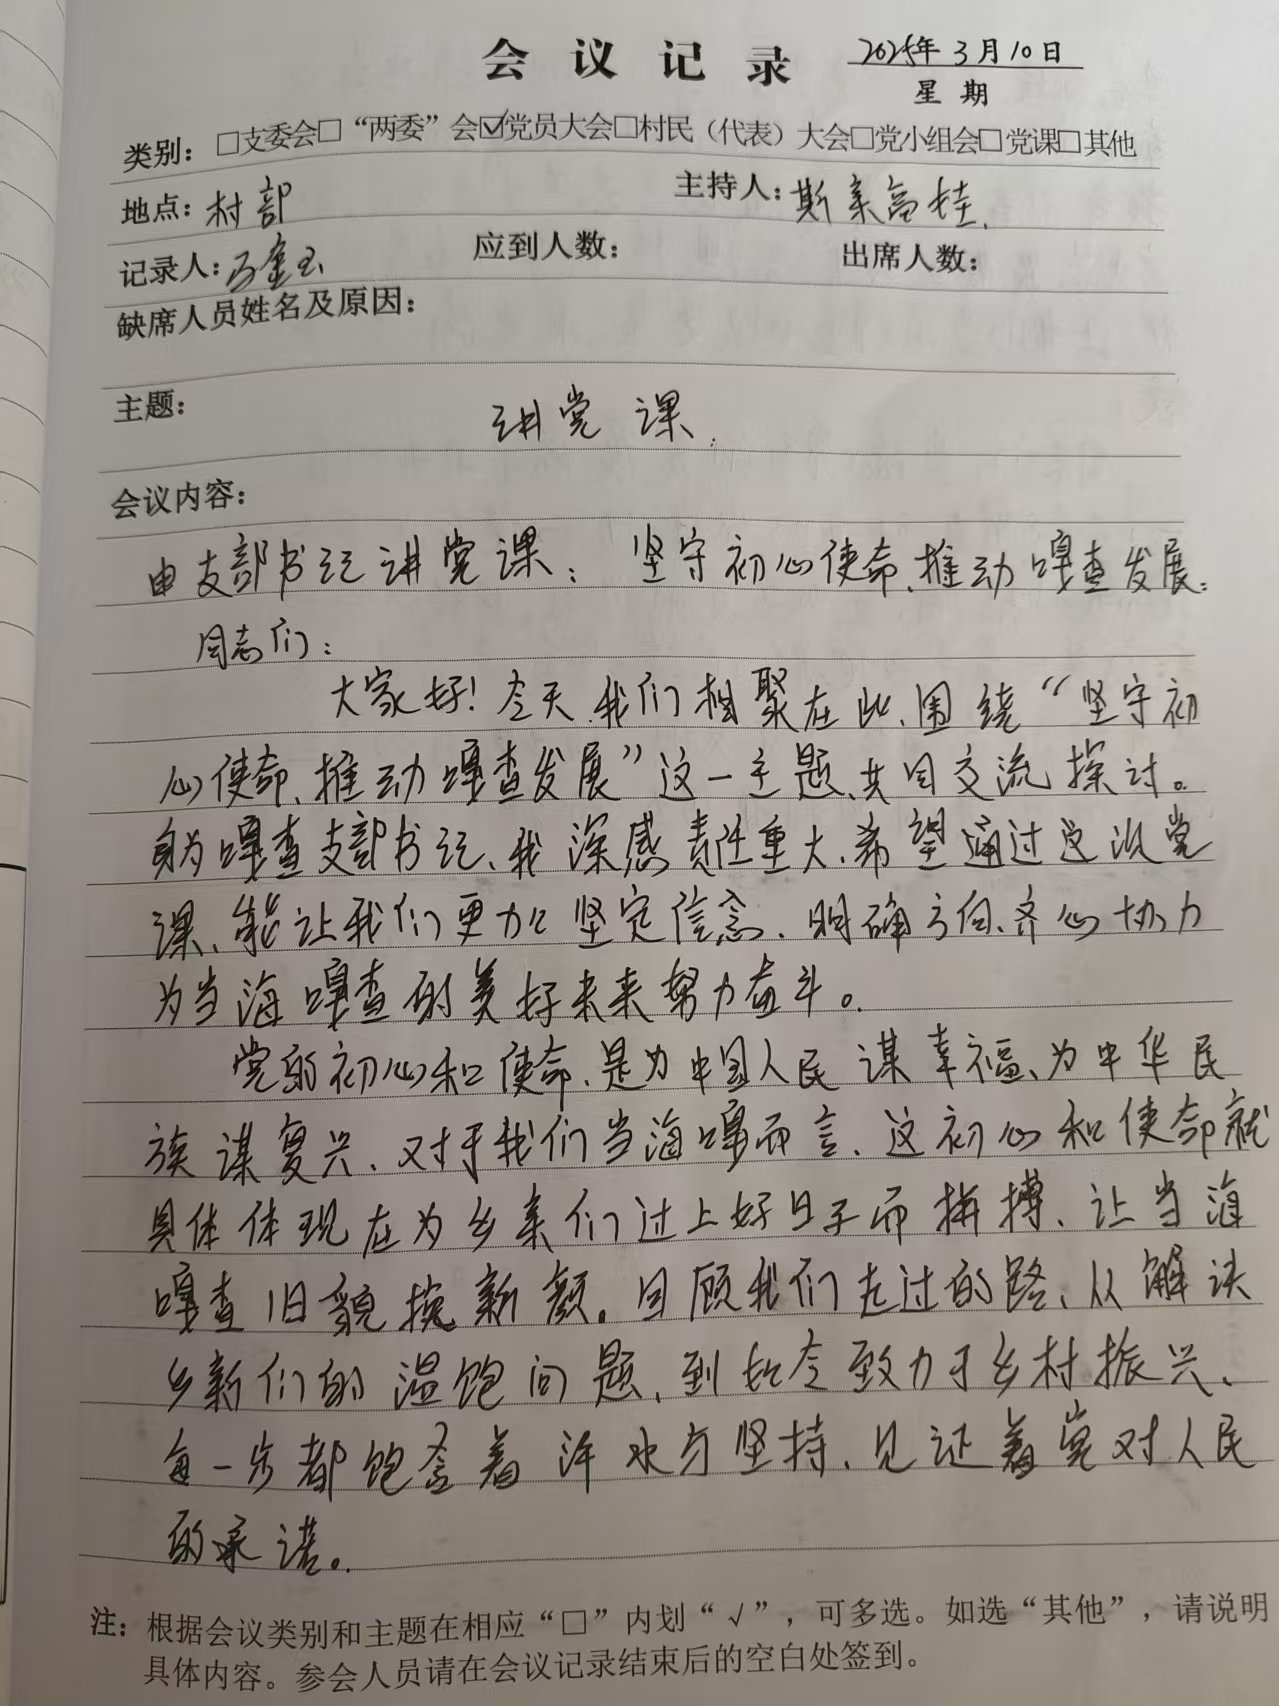 会议记录 2025年3月10日
星期
类别：□支委会□“两委”会☑党员大会□村民（代表）大会□党小组会□党课□其他
地点：村部 主持人：斯亲高娃
记录人： 应到人数： 出席人数：
缺席人员姓名及原因：
主题： 讲党课
会议内容：
由支部书记讲党课：坚守初心使命、推动嘎查发展.
同志们：
大家好！今天、我们相聚在此、围绕“坚守初
心使命、推动嘎查发展”这一主题、共同交流探讨。
身为嘎查支部书记、我深感责任重大、希望通过这次党
课、能让我们更加坚定信念、明确方向、齐心协力
为当海嘎查的美好未来努力奋斗。
党的初心和使命、是为中国人民谋幸福、为中华民
族谋复兴、对于我们当海嘎而言、这初心和使命就
具体体现在为乡亲们过上好日子而拼搏、让当海
嘎查旧貌换新颜。回顾我们走过的路、从解决
乡新们的温饱问题、到如今致力于乡村振兴、
每一步都饱含着汗水与坚持、见证着党对人民
的承诺。
注：根据会议类别和主题在相应“□”内划“√”，可多选。如选“其他”，请说明
具体内容。参会人员请在会议记录结束后的空白处签到。